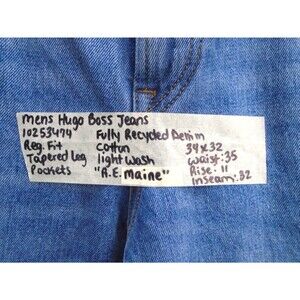 mens Hugo Boss Jeans
10253474 Fully Recycled Denim
Reg. Fit Cotton 34x32
Tapered Leg light Wash Waist: 35
Pockets "R.E. maine" Rise: 11
Inseam: 32